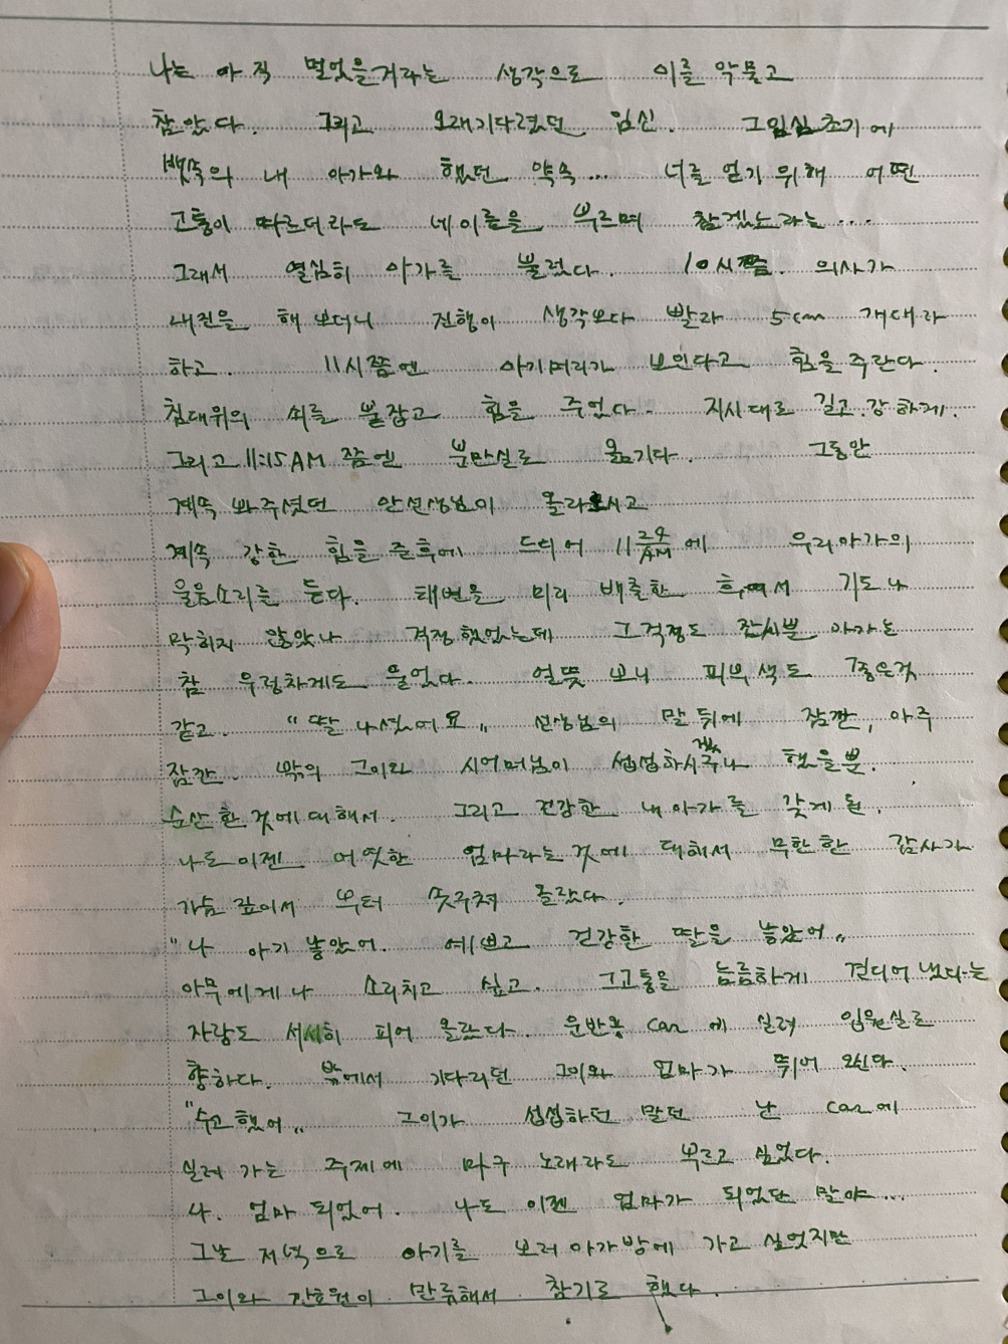 나는 아직 멀었을거라는 생각으로 이를 악물고
참았다. 그리고 오래기다렸던 임신. 그임신초기에
뱃속의 내 아가와 했던 약속... 너를 얻기 위해 어떤
고통이 따르더라도 네이름을 부르며 참겠노라는....
그래서 열심히 아가를 불렀다. 10시쯤. 의사가
내진을 해보더니 진행이 생각보다 빨라 5cm 개대라
하고. 11시쯤엔 아기머리가 보인다고 힘을 주란다.
침대위의 쇠를 붙잡고 힘을 주었다. 지시대로 길고.강하게.
그리고 11:15AM 쯤엔 분만실로 옮기다. 그동안
계속 봐주셨던 안선생님이 올라오시고
계속 강한 힘을 준후에 드디어 11 24 AM 에 우리아가의
울음소리를 듣다. 태변을 미리 배출한 흔여서 기도나
막히지 않았나 걱정했었는데 그걱정도 잠시뿐 아가는
참 우렁차게도 울었다. 얼뜻 보니 피부색도 좋은것
같고. "딸 나셨어요" 선생님의 말 뒤에 잠깐, 아주
잠깐. 밖의 그이와 시어머님이 섭섭하시겠구나 했을뿐.
순산한것에 대해서. 그리고 건강한 내아가를 갖게된.
나도이젠 어엿한 엄마라는것에 대해서 무한한 감사가
가슴 깊이서 부터 솟구쳐 올랐다.
"나 아기 낳았어. 예쁘고 건강한 딸을 낳았어"
아무에게나 소리치고 싶고. 그고통을 늠름하게 견디어 냈다는
자랑도 서서히 피어 올랐다. 운반용 car 에 실려 입원실로
향하다. 밖에서 기다리던 그이와 엄마가 뛰어 오신다.
"수고했어" 그이가 섭섭하던 말던 난 car에
실려 가는 주제에 마구 노래라도 부르고 싶었다.
나. 엄마 되었어. 나도 이젠 엄마가 되었단 말야...
그날 저녁으로 아기를 보러 아가방에 가고 싶었지만
그이와 간호원이 만류해서 참기로 했다.